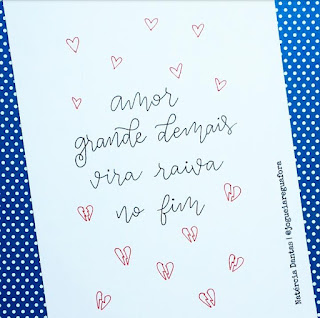 amor
grande demais
vira raiva
no fim
Natércia Dantas | @jogueiareguafora